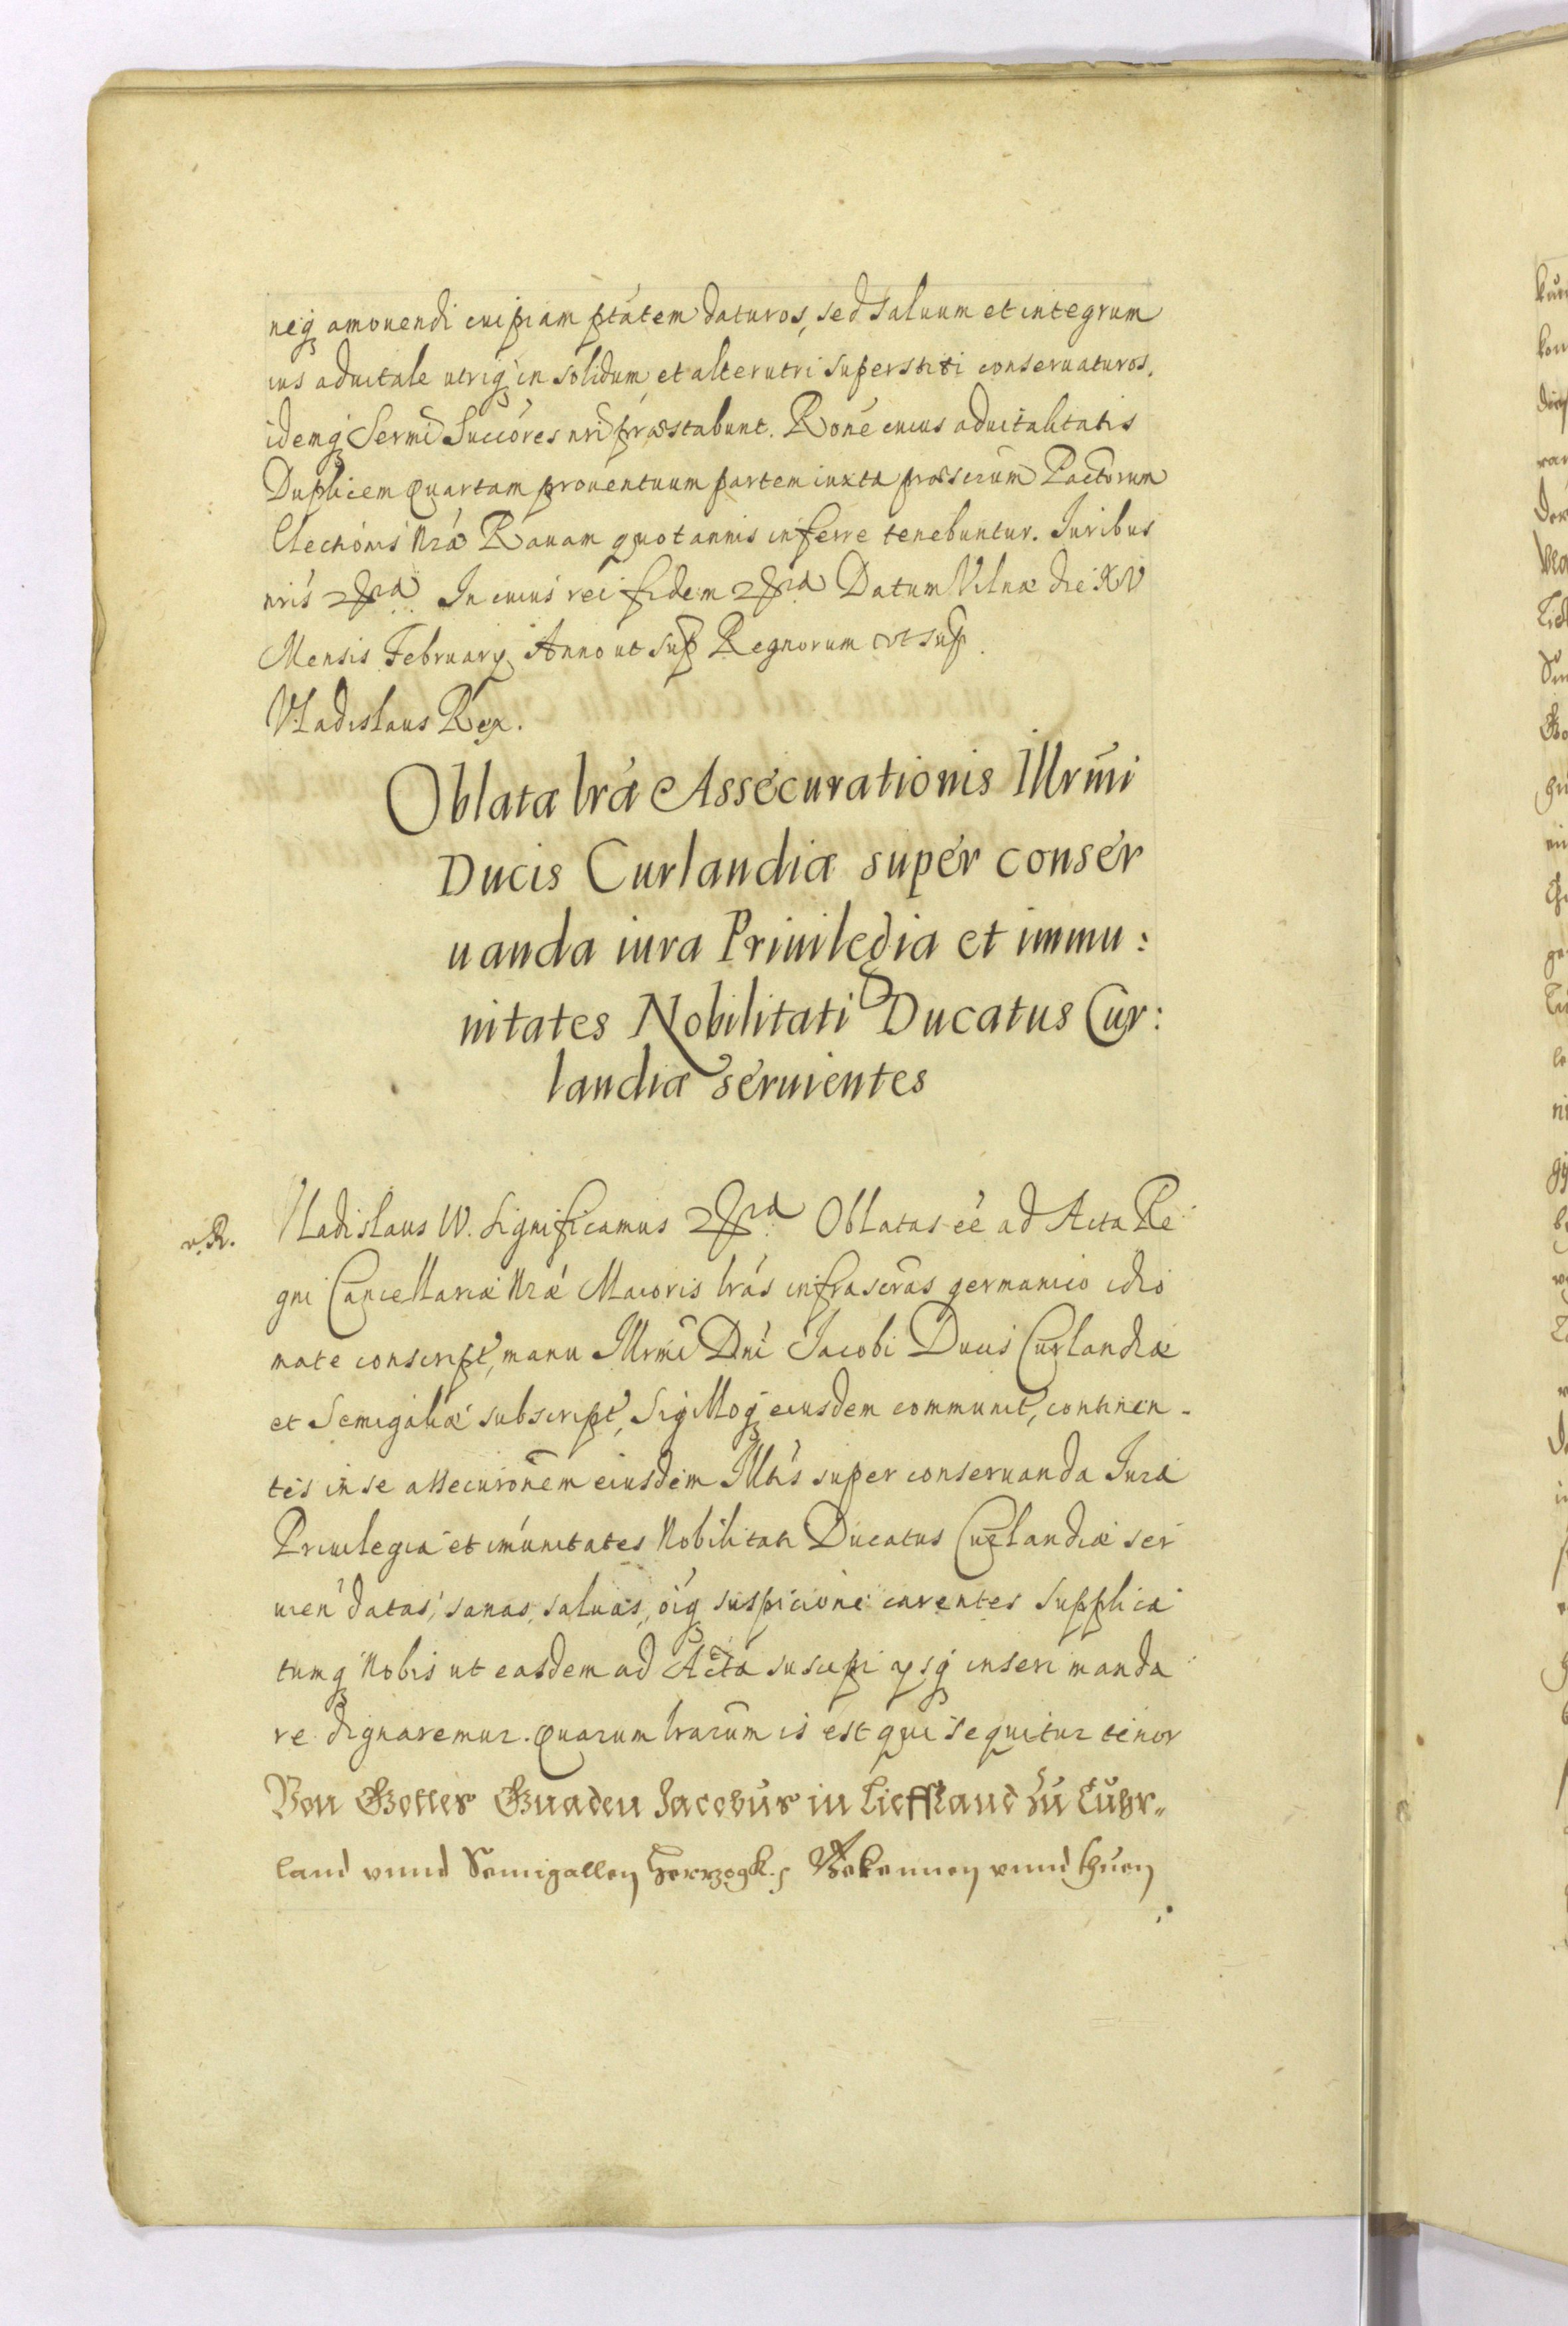 neq₃ amouendi cuipiam ptatem daturos, sed saluum et integrum
ius aduitale utriq₃ in solidum et alterutri superstiti conseruaturos,
idemq₃ Sermi Succores nri præstabunt. Rone cuius aduitalitatis
Duplicem quartam prouentuum partem iuxta præscrum Pactorum
Electionis Nræ Rauam quotannis inferre tenebuntur. Iuribus
nris In cuius rei fidem Datum Vilnæ die XV
Mensis February Anno ut sup Regnorum vt sup.
Vladislaus Rex.
Oblata lræ Assecurationis Illrmi
Ducis Curlandiæ super conser
uanda iura Priuilegia et immu:
nitates Nobilitati Ducatus Cur:
landiæ seruientes
v. R. Vladislaus IV. Significamus Oblatas eé ad Acta Re
gni Cancellariæ Nræ Maioris lras infrascras germanico idio
mate conscript, manu Illrmi Dni Iacobi Ducis Curlandiæ
et Semigaliæ subscript, Sigilloq₃ eiusdem communit, continen-
tes in se assecuronem eiusdem Illtis super conseruanda Iura
Priuilegia et imunitates Nobilitati Ducatus Curlandiæ ser
uien datas, sanas, saluas, oiq₃ suspicione carentes supplica
tumq₃ Nobis ut easdem ad Acta suscipi ysq₃ inseri manda
re dignaremur. Quarum lrarum is est qui sequitur tenor
Von Gottes Gnaden Jacobus in Lieffland zu Cuhr„
land vnnd Semigallen Herzogk. Bekennen vnnd thuen